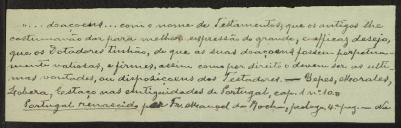 "... doacoens... com o nome de Testamentos, que os antigos lhe
costumavão dar para melhor expressão do grande, e efficaz desejo,
que os Dotadores tinhão, de que as suas doacoens fossem perpetua-
mente valiosas, e firmes, assim como por direito o devem ser as ulti-
mas vontades, ou disposiçoens dos Testadores. — Yepes, Morales,
Lobera, Estaço nas antiguidades de Portugal, cap. 1 nº 10.
Portugal renascido por Fr. Manoel da Rocha, prologo,